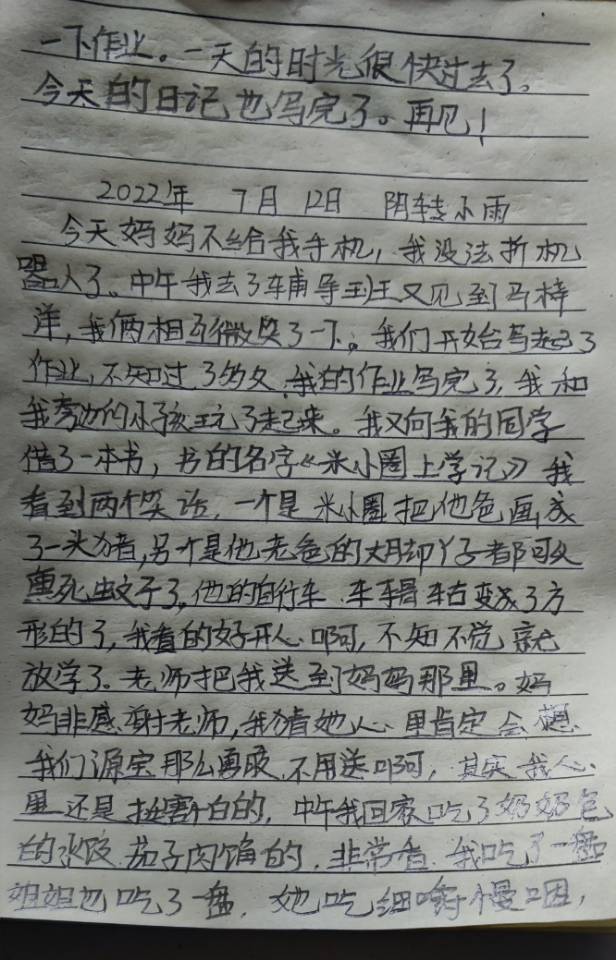 一下作业。一天的时光很快过去了。
今天的日记也写完了。再见！
2022年 7月 12日 阴转小雨
今天妈妈不给我手机，我没法折机
器人了。中午我去了辅导班又见到马梓
洋，我俩相互微笑了一下。我们开始写起了
作业，不知过了多久，我的作业写完了，我和
我旁边的小孩玩了起来。我又向我的同学
借了一本书，书的名字《米小圈上学记》我
看到两个笑话，一个是米小圈把他爸画成
了一头猪，另个是他老爸的大脚丫子都可以
熏死蚊子了，他的自行车、车轱变成了方
形的了，我看的好开心啊，不知不觉就
放学了。老师把我送到妈妈那里。妈
妈非感谢老师，我猜她心里肯定会想
我们源宝那么勇敢，不用送啊，其实我心
里还是挺害怕的，中午我回家吃了奶奶包
的水饺，茄子肉馅的，非常香，我吃了一盘
姐姐也吃了一盘，她吃细嚼慢咽，